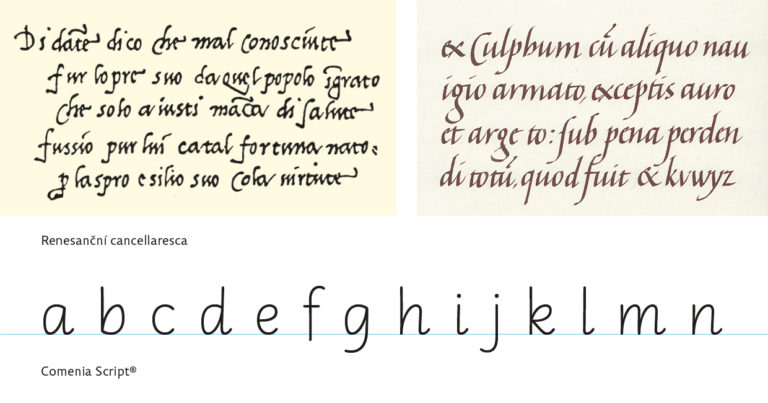 Di dāte dico che mal conosciute
fur lopre suo da quel popolo īgrato
che solo a iusti māca di ſalute
fussio pur lui catal fortuna nato:
ꝑ laspro esilio suo cola uirtute
ex Culphum cū aliquo nau
igio armato, exceptis auro
et arge to: ſub pena perden
di totū, quod fuit & kvwyz
Renesanční cancellaresca
a b c d e f g h i j k l m n
Comenia Script®